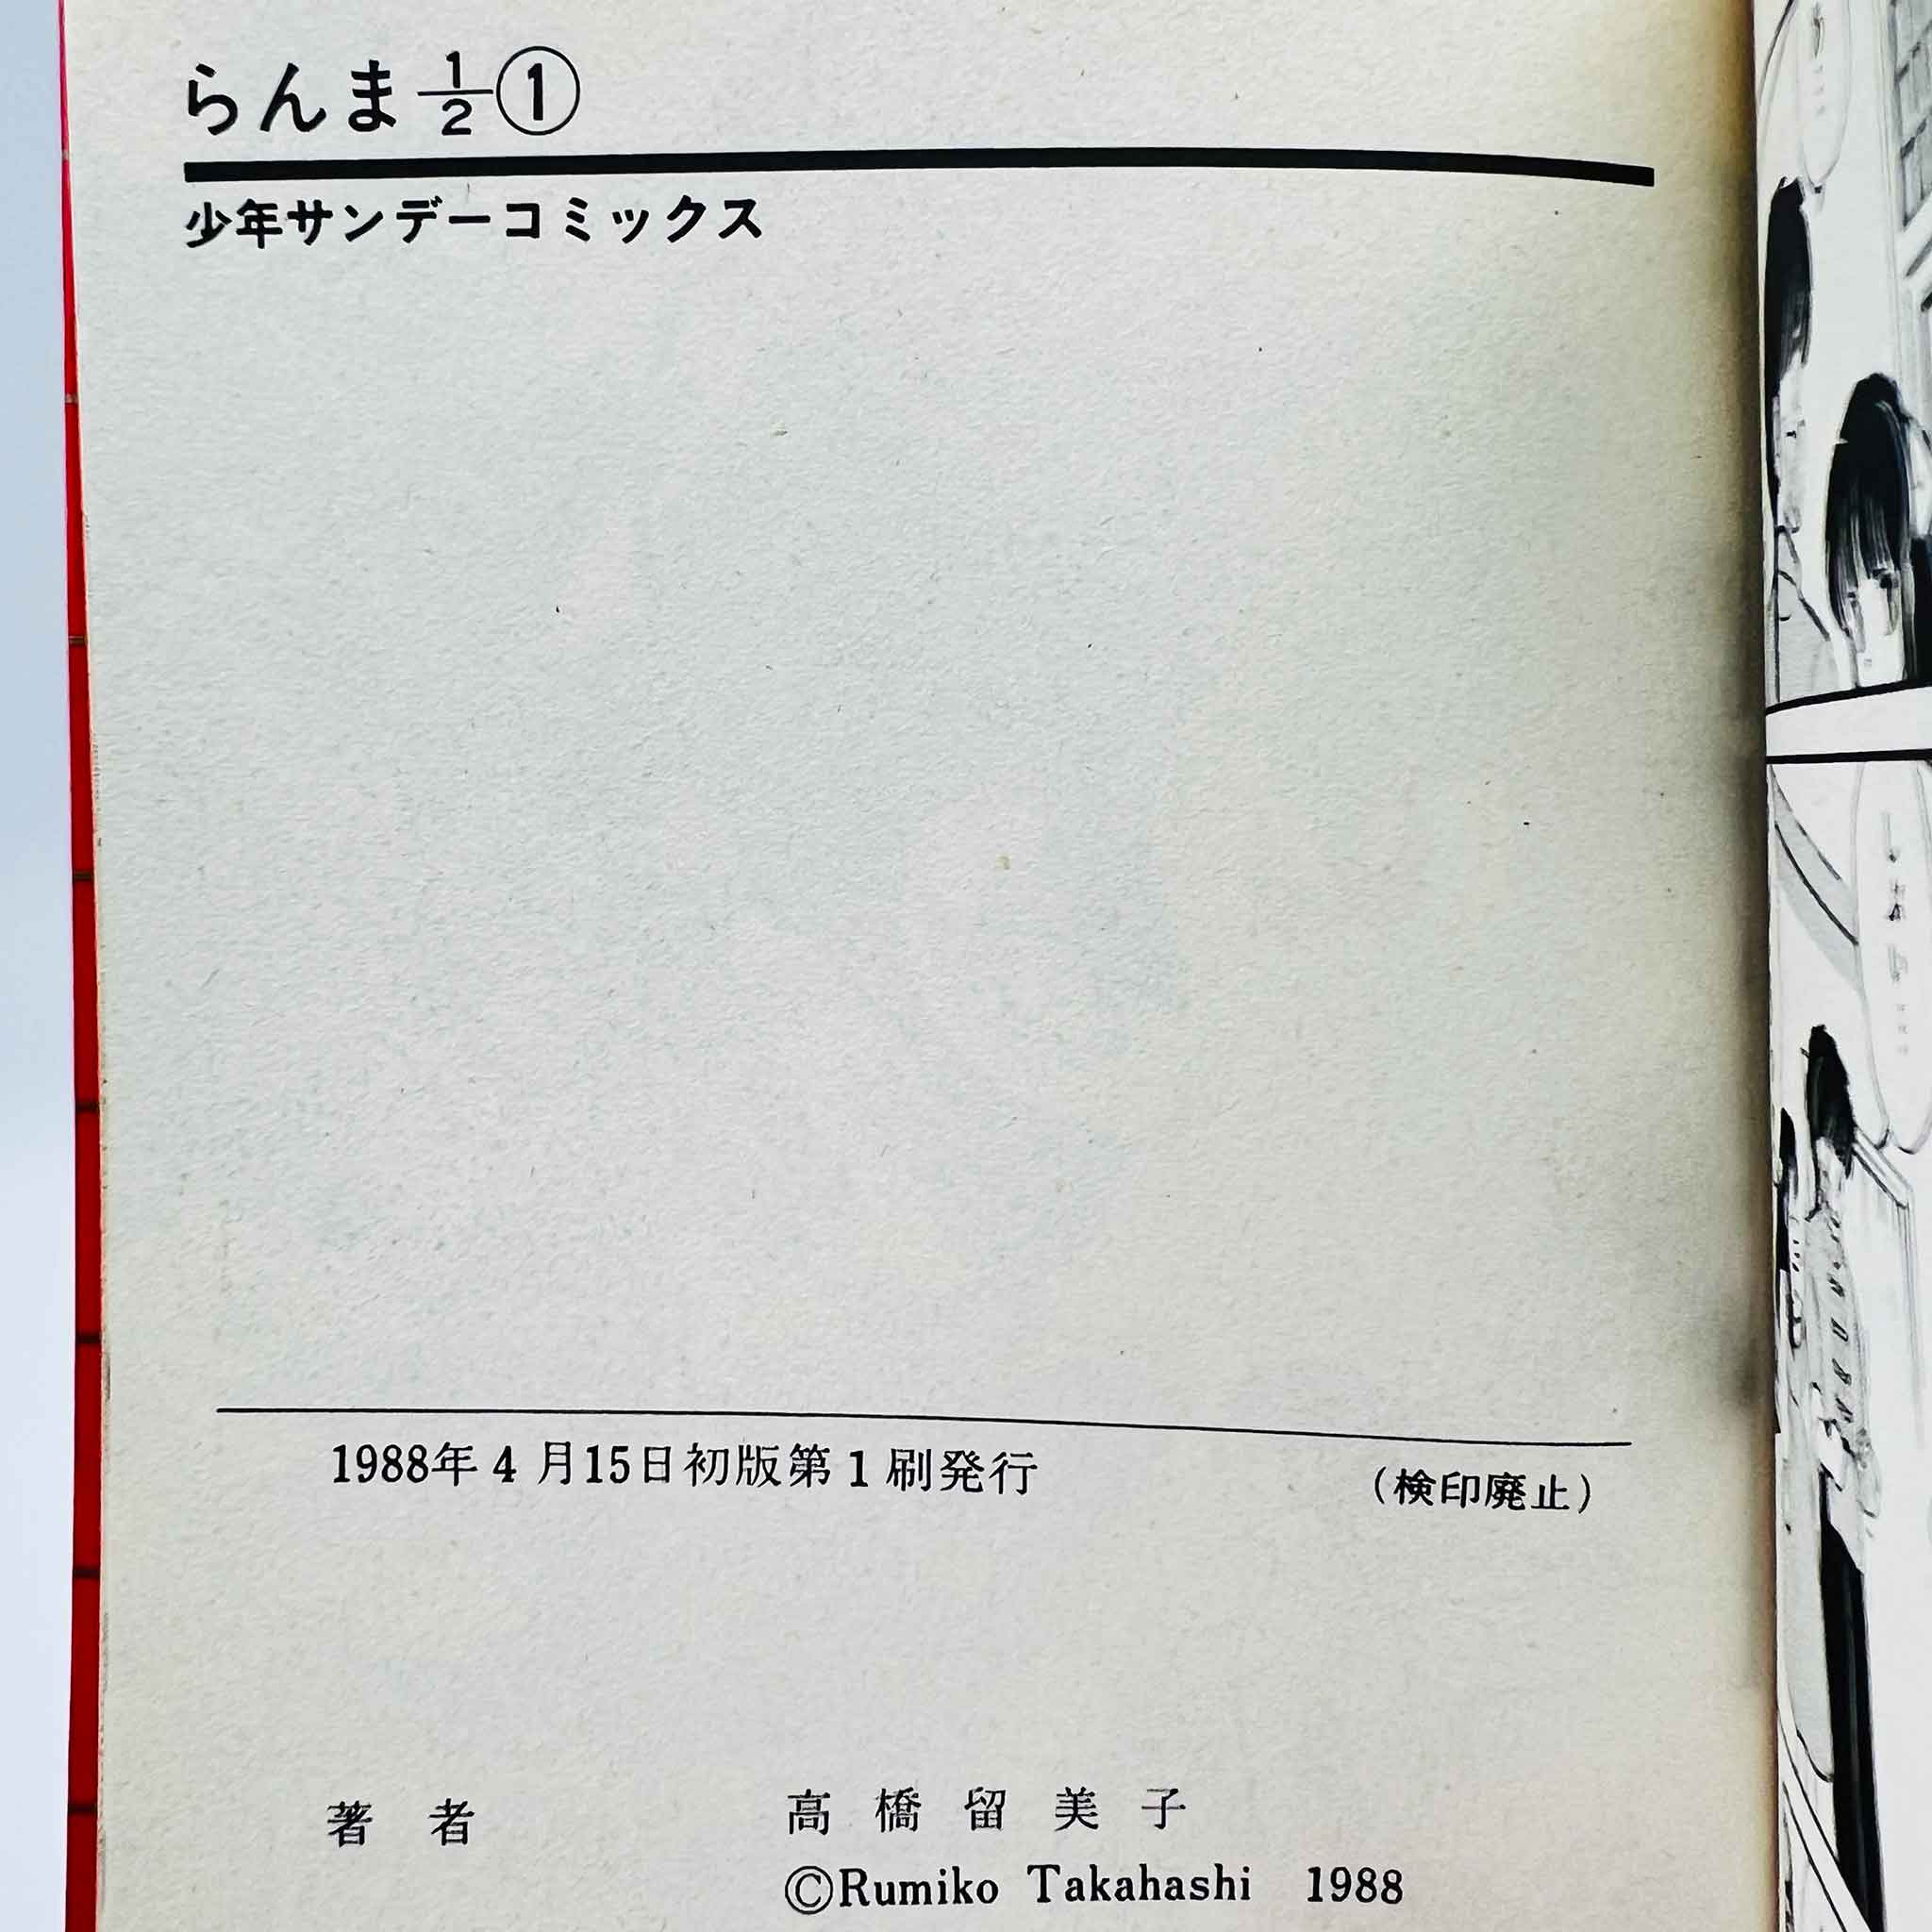 らんま1/2①
少年サンデーコミックス
1988年4月15日初版第1刷発行
(検印廃止)
著者 高橋留美子
©Rumiko Takahashi 1988